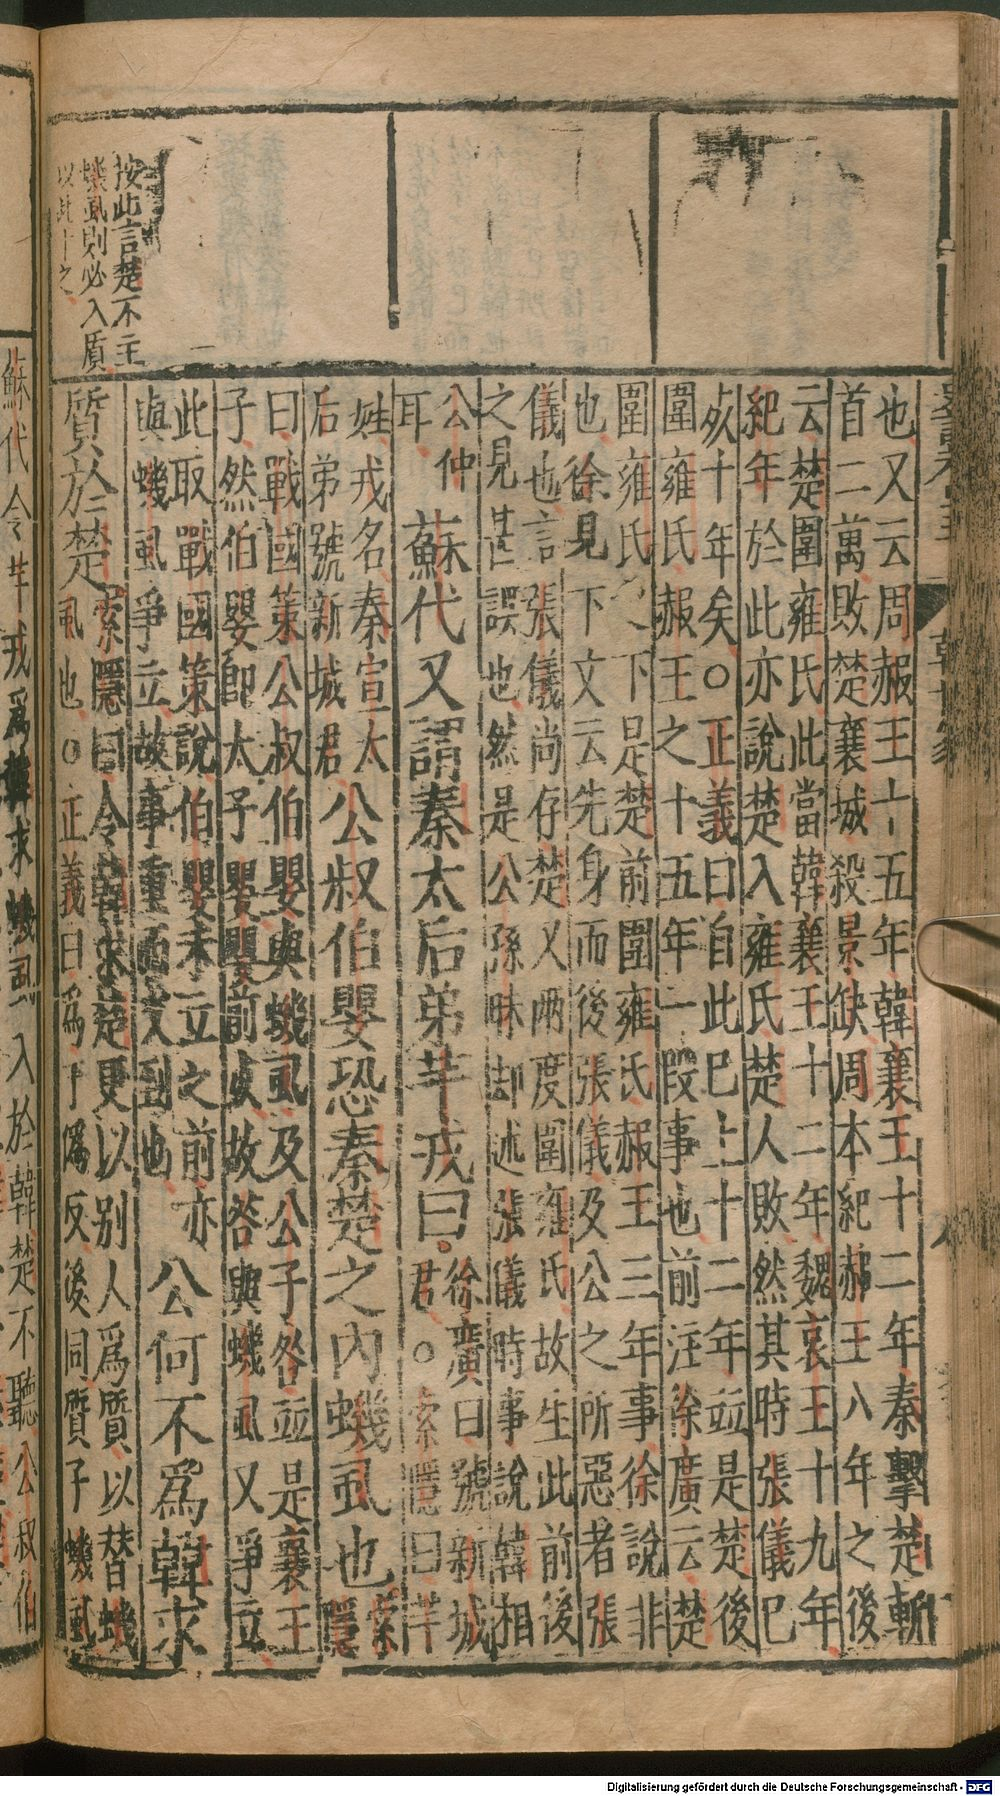 也又云周赧王十五年韓襄王十二年秦擊楚斬
首二萬敗楚襄城殺景缺周本紀赧王八年之後
云楚圍雍氏此當韓襄王十二年魏哀王十九年
紀年於此亦說楚入雍氏楚人敗然其時張儀已
死十年矣○正義曰自此已上十二年並是楚後
圍雍氏赧王之十五年一段事也前注徐廣云楚
圍雍氏之下是楚前圍雍氏赧王三年事徐說非
也徐見下文云先身而後張儀及公之所惡者張
儀也言張儀尚存楚又兩度圍雍氏故生此前後
之見甚誤也然是公孫昧却述張儀時事說韓相
公仲
耳
蘇代又謂秦太后弟芊戎曰
徐廣曰號新城
君○索隱曰芊
姓戎名秦宣太
后弟號新城君
公叔伯嬰恐秦楚之內蟣虱也
索
隱
曰戰國策公叔伯嬰與蟣虱及公子咎並是襄王
子然伯嬰即太子嬰嬰前死故咎與蟣虱又爭立
此取戰國策說伯嬰未立之前亦
與蟣虱爭立故事重而文到也
公何不為韓求
質於楚
索隱曰令韓求楚更以別人為質以替蟣
虱也○正義曰為于僞反後同質子蟣虱
按此言楚不主
蟣虱則必入質
以此十之
蘇代令芊戎為韓求蟣虱入於韓楚不聽公叔伯
Digitalisierung gefördert durch die Deutsche Forschungsgemeinschaft - DFG